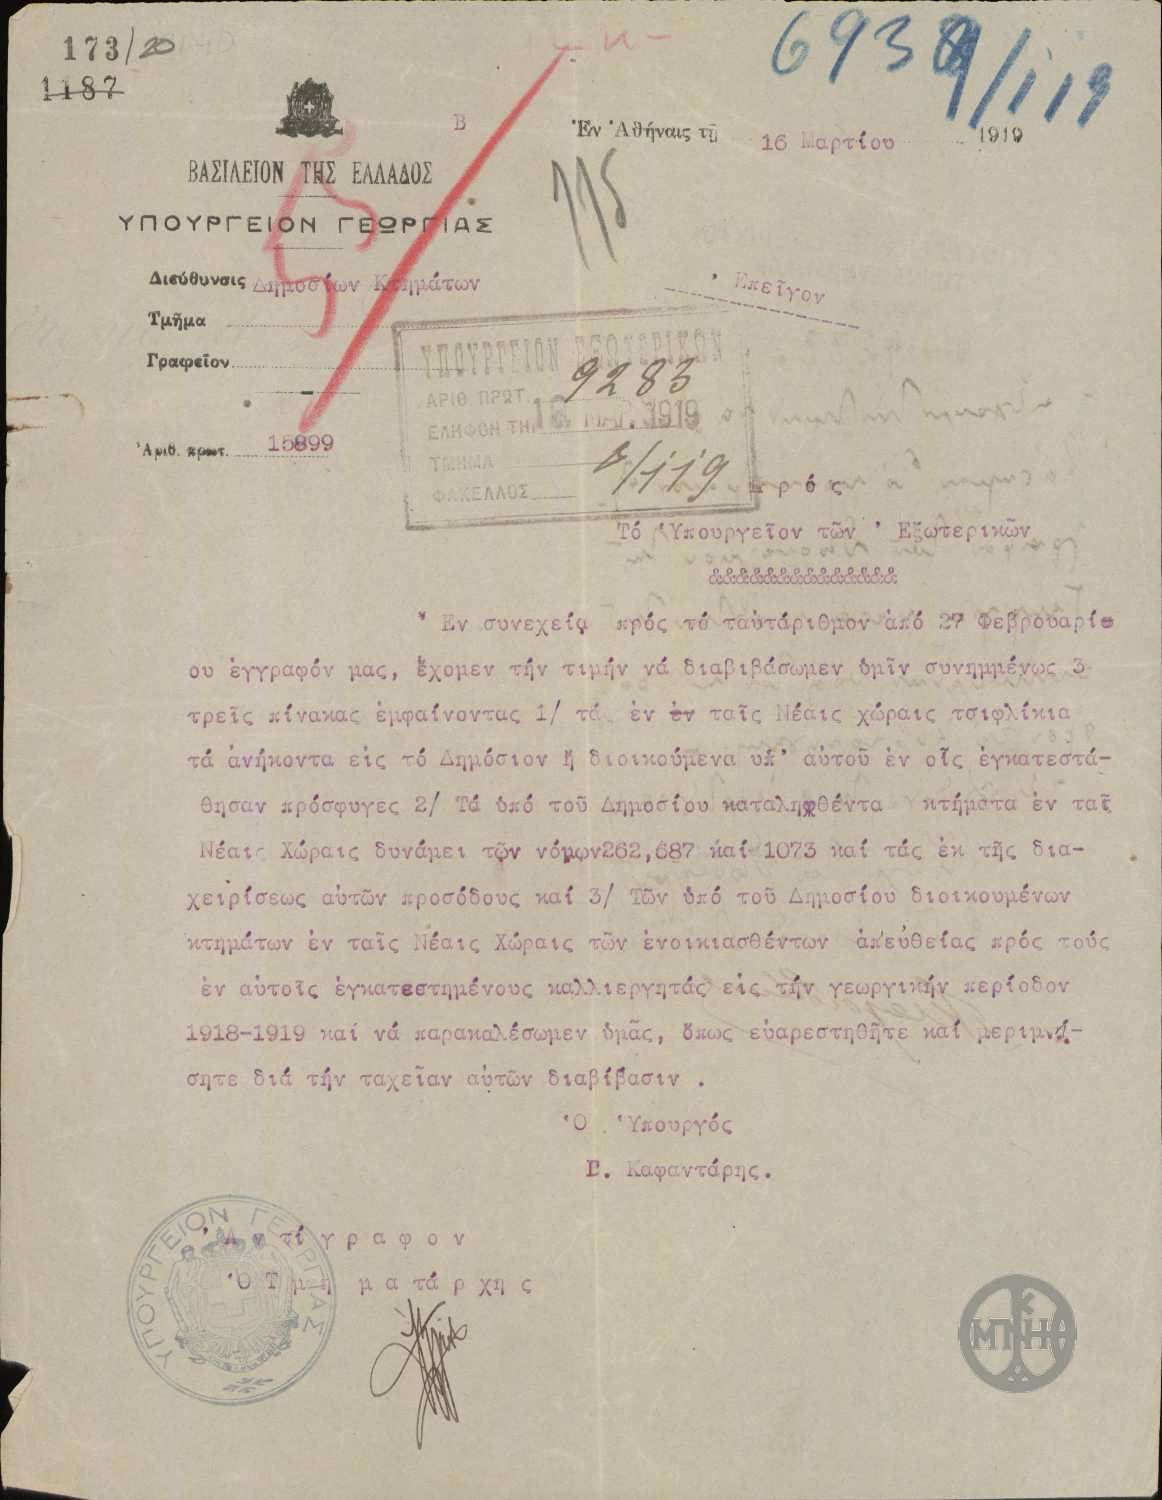 173/20
1187
6938
Α/113
Β
Ἐν Ἀθήναις τῇ 16 Μαρτίου 1919
ΒΑΣΙΛΕΙΟΝ ΤΗΣ ΕΛΛΑΔΟΣ
ΥΠΟΥΡΓΕΙΟΝ ΓΕΩΡΓΙΑΣ
115
Διεύθυνσις Δημοσίων Κτημάτων
Ἐπεῖγον
Τμῆμα
Γραφεῖον
ΥΠΟΥΡΓΕΙΟΝ ΕΞΩΤΕΡΙΚΩΝ
ΑΡΙΘ. ΠΡΩΤ. 9283
ΕΛΗΦΘΗ ΤΗ 18 ΜΑΡ. 1919
ΤΜΗΜΑ
ΦΑΚΕΛΛΟΣ
Α/119
Ἀριθ. πρωτ. 15899
Πρός
Τό Ὑπουργεῖον τῶν Ἐξωτερικῶν
Ἐν συνεχείᾳ πρός τό ταὐτάριθμον ἀπό 27 Φεβρουαρί
ου ἐγγραφόν μας, ἔχομεν τήν τιμήν νά διαβιβάσωμεν ὑμῖν συνημμένως 3
τρεῖς πίνακας ἐμφαίνοντας 1/ τά ἐν ἐν ταῖς Νέαις χώραις τσιφλίκια
τά ἀνήκοντα εἰς τό Δημόσιον ἤ διοικούμενα ὑπ' αὐτοῦ ἐν οἷς ἐγκατεστά-
θησαν πρόσφυγες 2/ Τά ὑπό τοῦ Δημοσίου καταληφθέντα κτήματα ἐν ταῖς
Νέαις Χώραις δυνάμει τῶν νόμων262,687 καί 1073 καί τάς ἐκ τῆς δια-
χειρίσεως αὐτῶν προσόδους καί 3/ Τῶν ὑπό τοῦ Δημοσίου διοικουμένων
κτημάτων ἐν ταῖς Νέαις Χώραις τῶν ἐνοικιασθέντων ἀπ'εὐθείας πρός τούς
ἐν αὐτοῖς ἐγκατεστημένους καλλιεργητάς εἰς τήν γεωργικήν περίοδον
1918-1919 καί νά παρακαλέσωμεν ὑμᾶς, ὅπως εὐαρεστηθῆτε καί μεριμνή-
σητε διά τήν ταχεῖαν αὐτῶν διαβίβασιν .
Ὁ Ὑπουργός
Γ. Καφαντάρης.
Ἀντίγραφον
Ὁ Τμηματάρχης
ΥΠΟΥΡΓΕΙΟΝ ΓΕΩΡΓΙΑΣ
ΜΠΗΚ